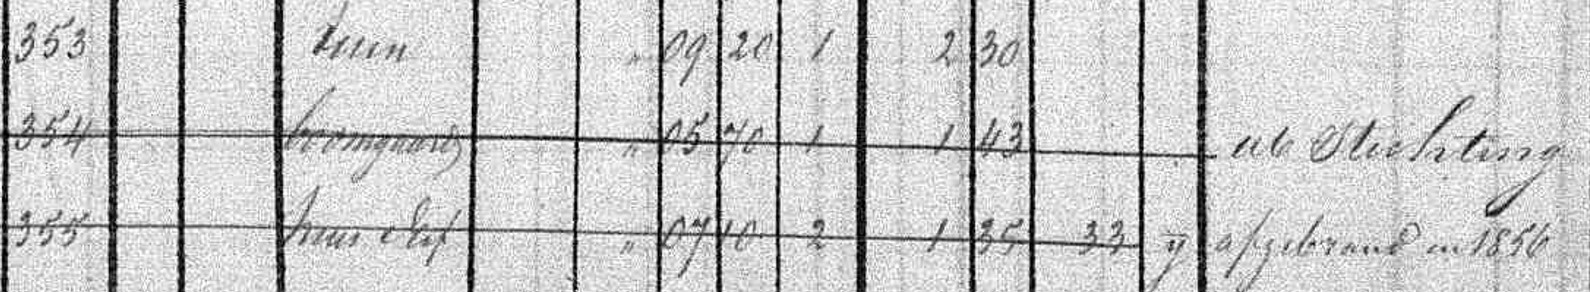 353 tuin " 09 20 1 2 30
354 boomgaard " 05 70 1 1 43 Stichting
355 huis & Erf " 07 10 2 1 35 33 y afgebrand in 1856